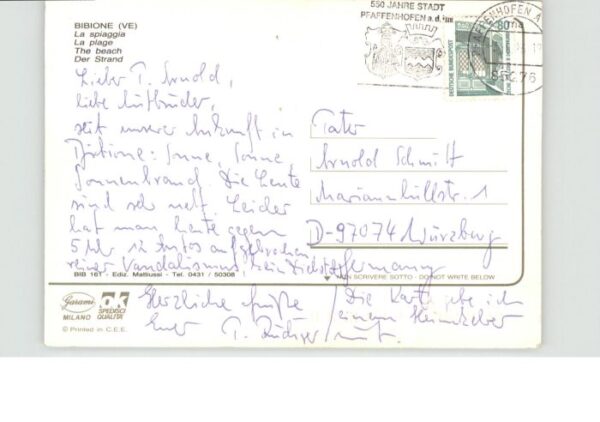 BIBIONE (VE)
La spiaggia
La plage
The beach
Der Strand
550 JAHRE STADT
PFAFFENHOFEN a.d. Ilm
80
DEUTSCHE BUNDESPOST
85276
Lieber P. Arnold,
liebe Mitbrüder,
seit unserer Ankunft in
Bibione: Sonne, Sonne,
Sonnenbrand. Die Leute
sind sehr nett. Leider
hat man heute gegen
5 Uhr 12 Autos aufgebrochen
reiner Vandalismus kein Diebstahl
Pater
Arnold Schmitt
Mariannhillstr. 1
D-97074 Würzburg
Germany
BIB 16T - Ediz. Mattiussi - Tel. 0431 / 50308
NON SCRIVERE SOTTO - DO NOT WRITE BELOW
Garami
MILANO
OK
SPEDISCI
QUALITÀ
© Printed in C.E.E.
Herzliche Grüße
Euer P. Rüdiger
Die Karte gebe ich
einem Heimkehrer
mit.